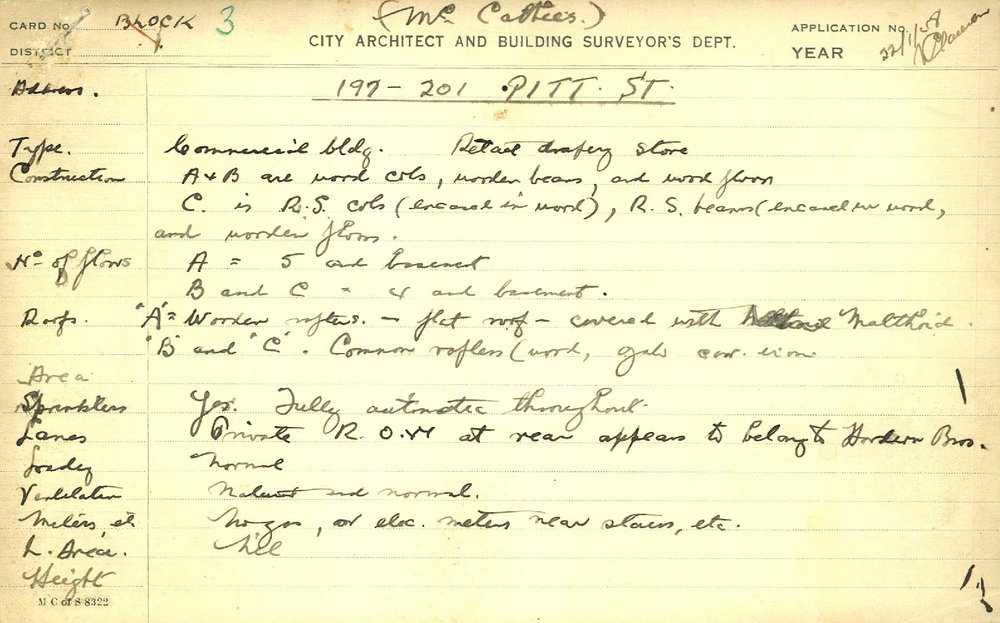 (Mc Cathies.)
CARD No. BLOCK 3
CITY ARCHITECT AND BUILDING SURVEYOR'S DEPT.
APPLICATION No. 22/1/58
DISTRICT
YEAR
Address. 197 - 201 PITT. ST.
Type. Commercial bldg. Retail drapery store
Construction A & B are wood cols, wooden beams, and wood floors
C. is R.S. cols (encased in wood), R.S. beams (encased in wood,
and wooden floors.
No of floors A = 5 and basement
B and C = 4 and basement.
Roofs. "A" = Wooden rafters. - flat roof - covered with Malthoid.
"B" and "C". Common rafters (wood, galv corr. iron
Area
Sprinklers Yes. Fully automatic throughout.
Lanes Private R.O.W at rear appears to belong to Hordern Bros.
Loading Normal
Ventilation Natural and normal.
Meters etc No gas, or elec. meters near stairs, etc.
L. Area. Nil
Height
M C of S 8322